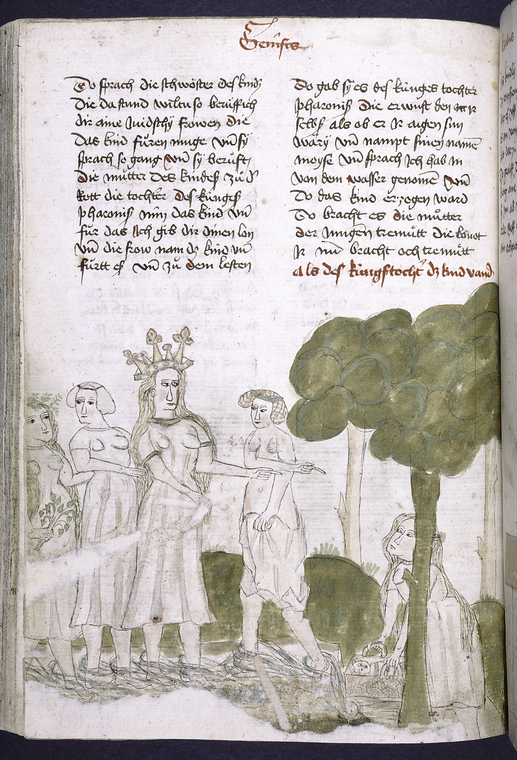 Genesis
Do sprach die schwöster des kinds
Die da stund wiltu so beruff ich
dir aine Juidsthy frowen die
das kind füren muge vnd sy
sprach so gang vnd sy berüfft
die mütter des kindes zu der
Rett die tochter des künges
pharonis nim das kind vnd
für das Ich gib dir inen lon
vnd die frow nam dz kind vnd
fürtt es vnd zu dem lesten
Do gab sy es des künges tochter
pharonis die erwust den mir
selbs als ob er Ir aigen sun
wäry vnd nampt sinen namen
moyse vnd sprach Ich hab in
von dem wasser genomen vnd
Do das kind erzogen ward
Do bracht es die mütter
der Jungen
Ir bracht och
als des küngs tochter dz kind vand